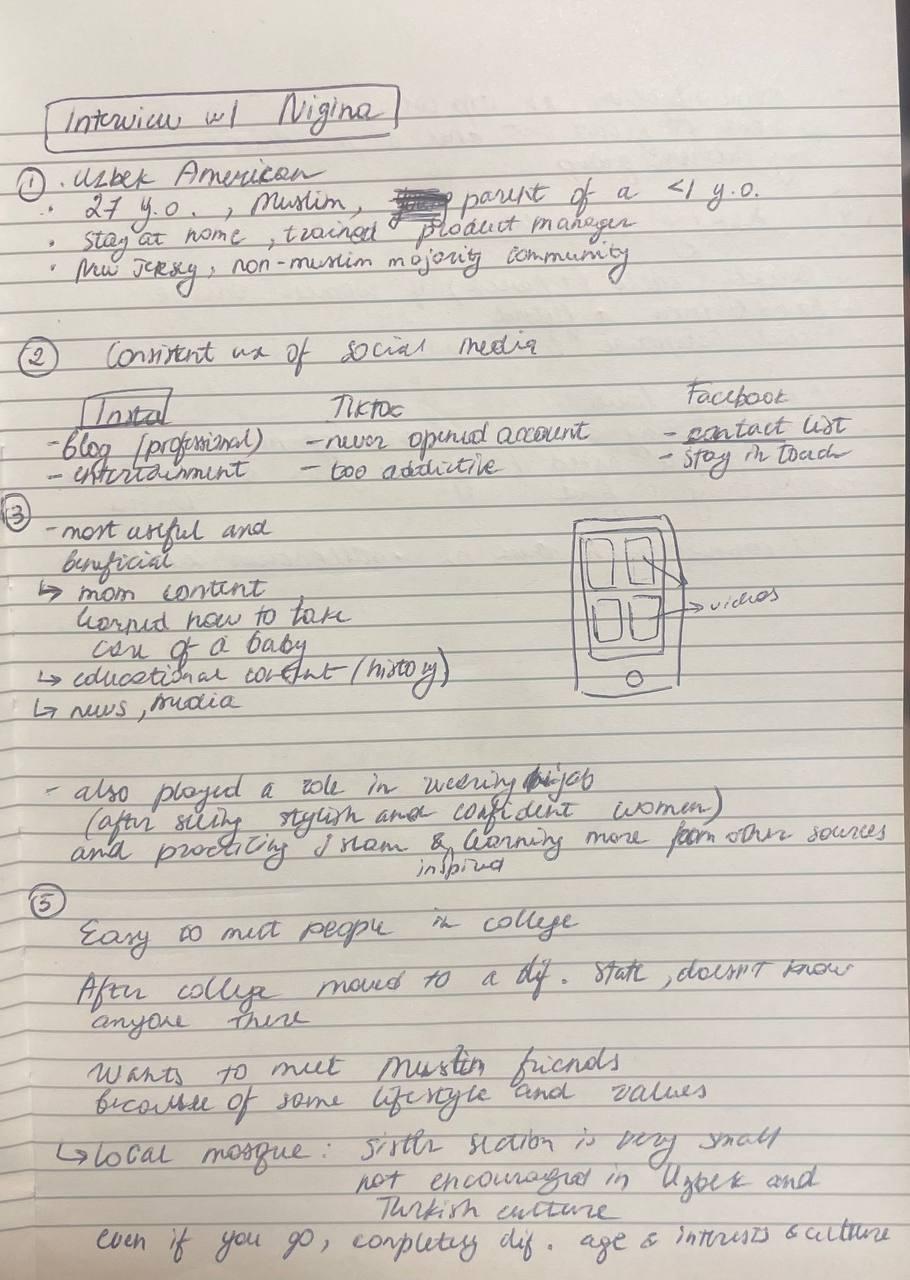 Interview w/ Nigina
① · Uzbek American
· 27 y.o., Muslim, parent of a <1 y.o.
· Stay at home, trained product manager
· New Jersey, non-muslim majority community
② Consistent use of social media
Insta Tiktoc Facebook
- blog (professional) - never opened account - contact list
- entertainment - too addictive - stay in touch
③ - most useful and
beneficial
↳ mom content
learned how to take
care of a baby
↳ educational content (history)
↳ news, media
→ videos
- also played a role in wearing hijab
(after seeing stylish and confident women)
and practicing Islam & learning more from other sources
inspired
⑤
Easy to meet people in college
After college moved to a dif. state, doesn't know
anyone there
Wants to meet Muslim friends
because of same lifestyle and values
↳ local mosque: sister section is very small
not encouraged in Uzbek and
Turkish culture
even if you go, completely dif. age & interests & culture